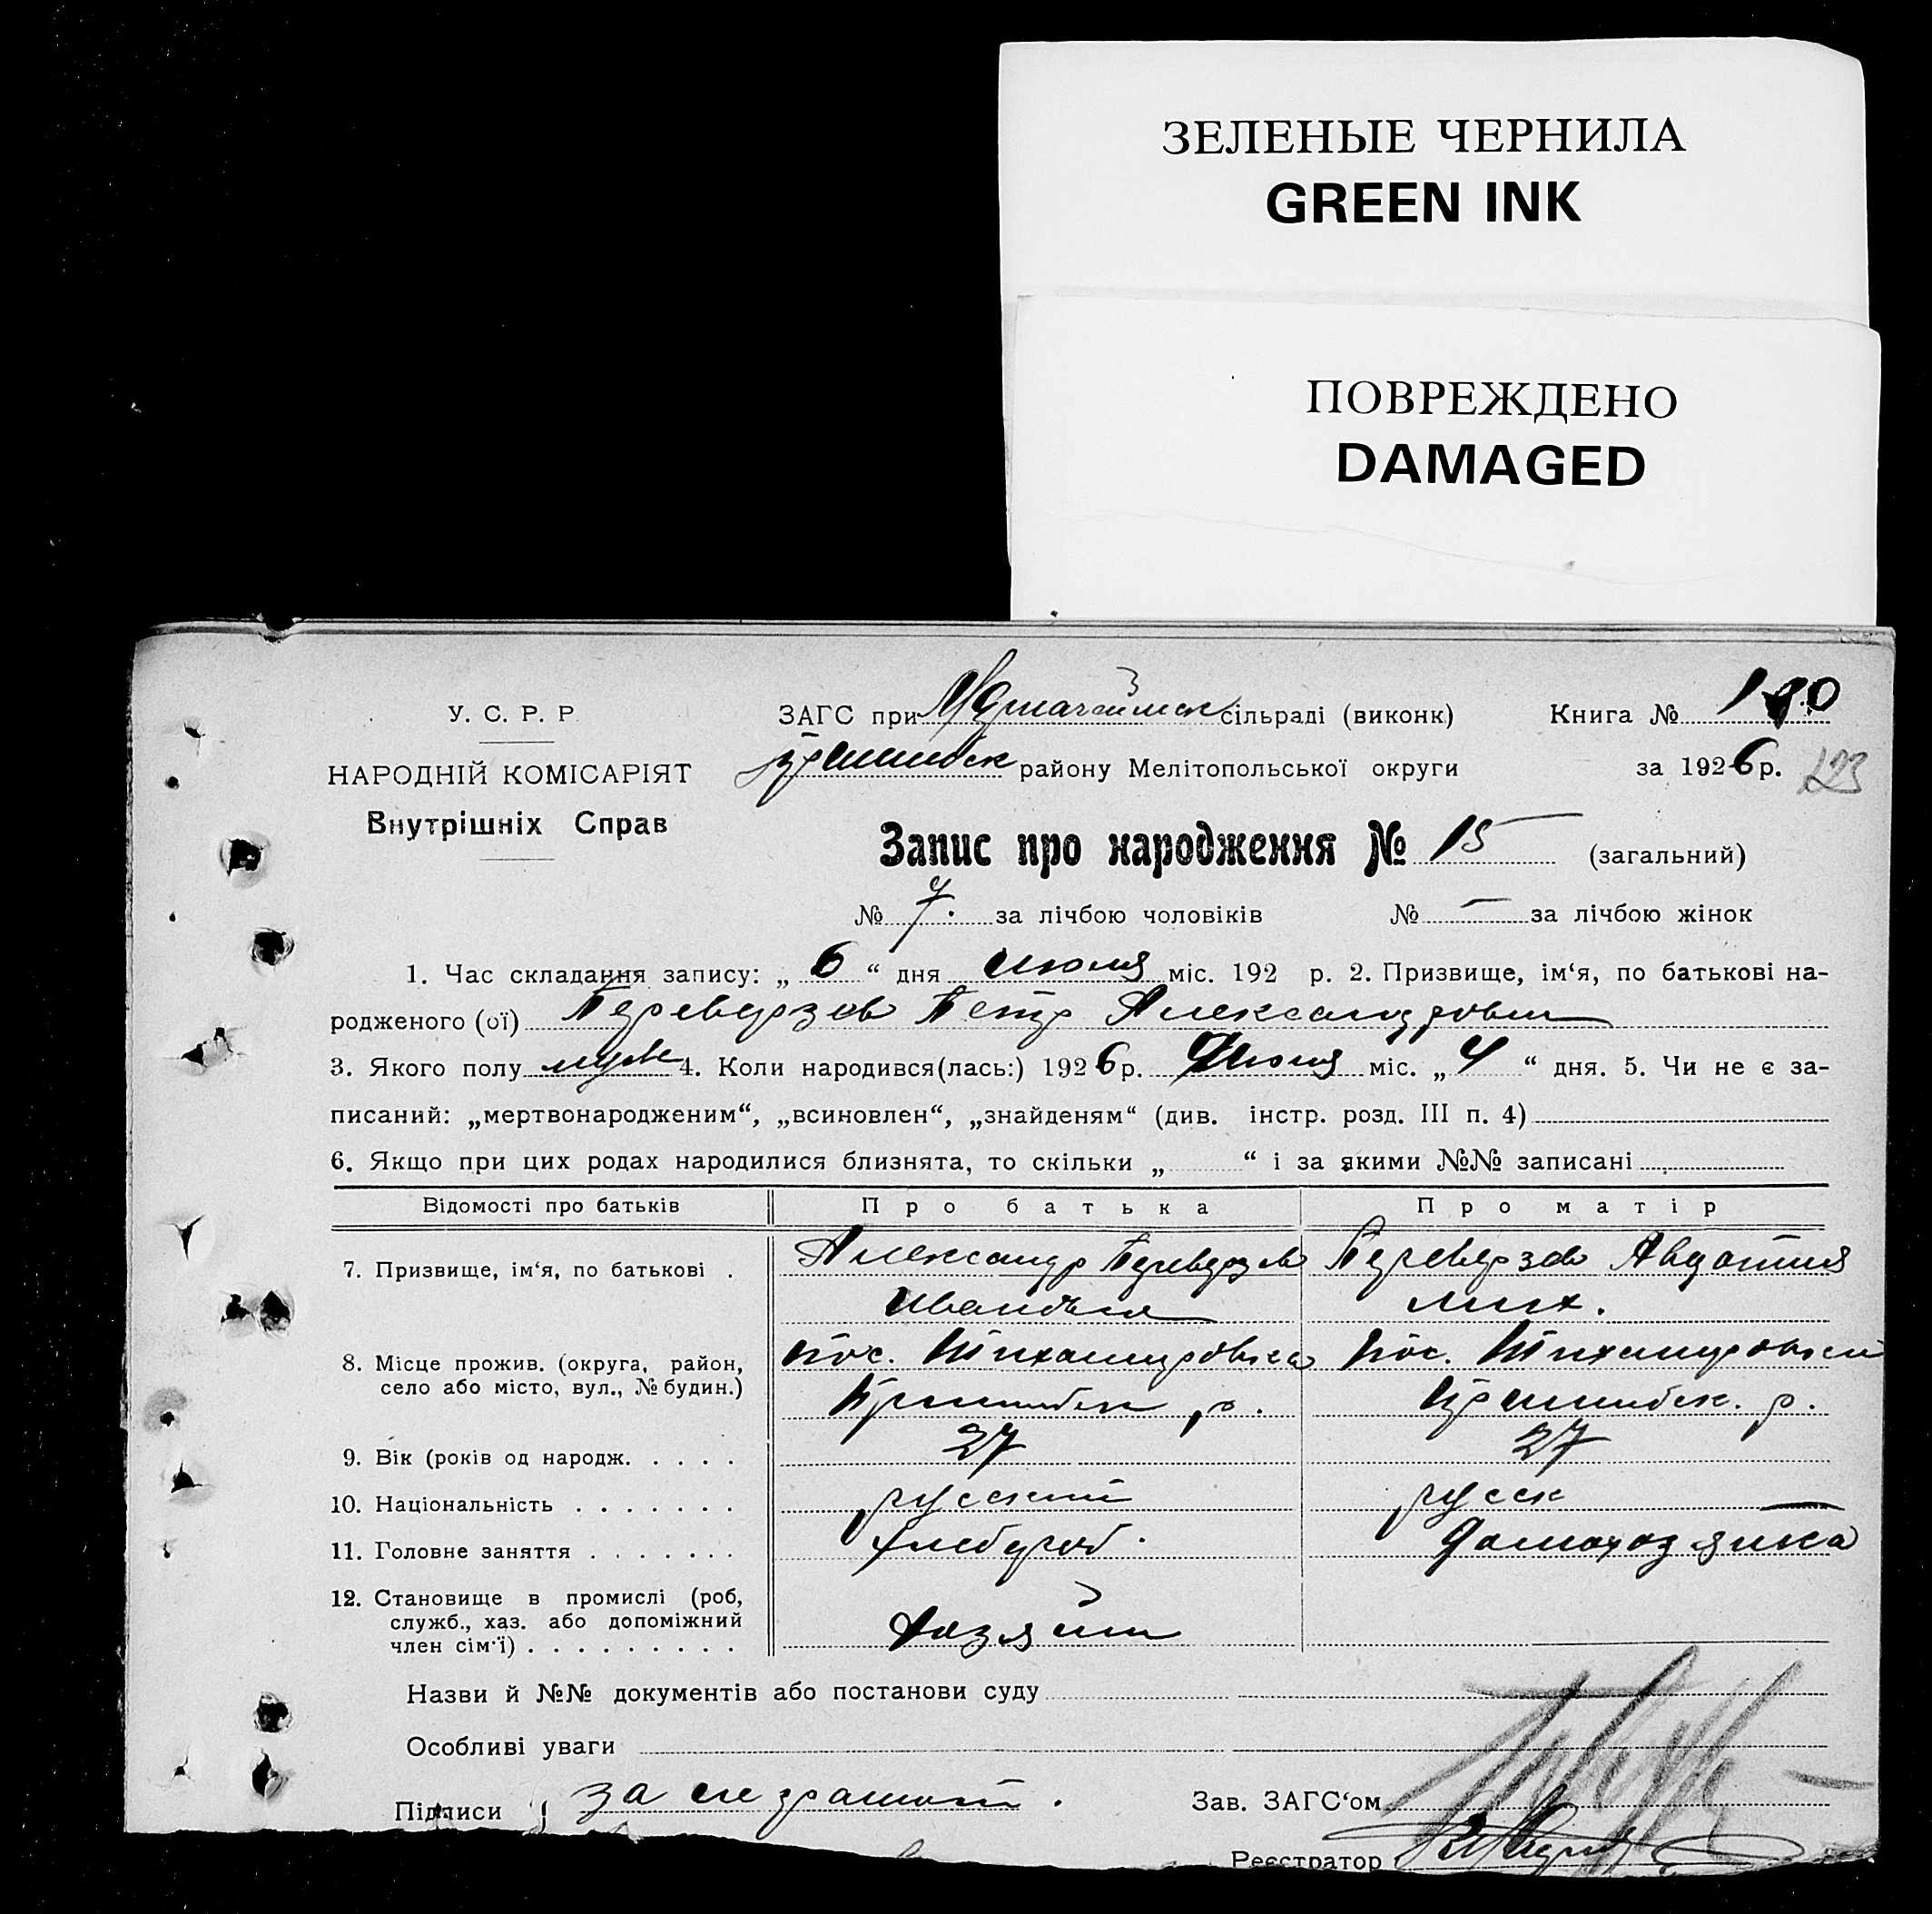 ЗЕЛЕНЫЕ ЧЕРНИЛА
GREEN INK
ПОВРЕЖДЕНО
DAMAGED
У. С. Р. Р.
НАРОДНІЙ КОМІСАРІЯТ
Внутрішніх Справ
ЗАГС при сільраді (виконк) Книга №
району Мелітопольської округи за 1926 р. 123
Запис про народження № 15 (загальний)
№ 7. за лічбою чоловіків № — за лічбою жінок
1. Час складання запису: „ 6 “ дня Июля міс. 192 р. 2. Призвище, ім‘я, по батькові на-
родженого (ої) Переверзов Петр Александрович
3. Якого полу муж 4. Коли народився(лась:) 1926 р. Июля міс. „ 4 “ дня. 5. Чи не є за-
писаний: „мертвонародженим“, „всиновлен“, „знайденям“ (див. інстр. розд. III п. 4)
6. Якщо при цих родах народилися близнята, то скільки „ “ і за якими №№ записані
Відомості про батьків Про батька Про матір
7. Призвище, ім‘я, по батькові . Александр Переверзов Переверзов Авдотия
Иванович Мих.
8. Місце прожив. (округа, район, село або місто, вул., № будин.) пос. Тихамировка пос.
Пришибск р. Пришибск. р.
9. Вік (років од народж. . . . . 27 27
10. Національність . . . . . . . русский русск
11. Головне заняття . . . . . . . хлебороб. домохозяйка
12. Становище в промислі (роб,
служб., хаз. або допоміжний
член сім‘ї) . . . . . . . . . Хозяин
Назви й №№ документів або постанови суду
Особливі уваги
Підписи за неграмот. Зав. ЗАГС‘ом
Реєстратор